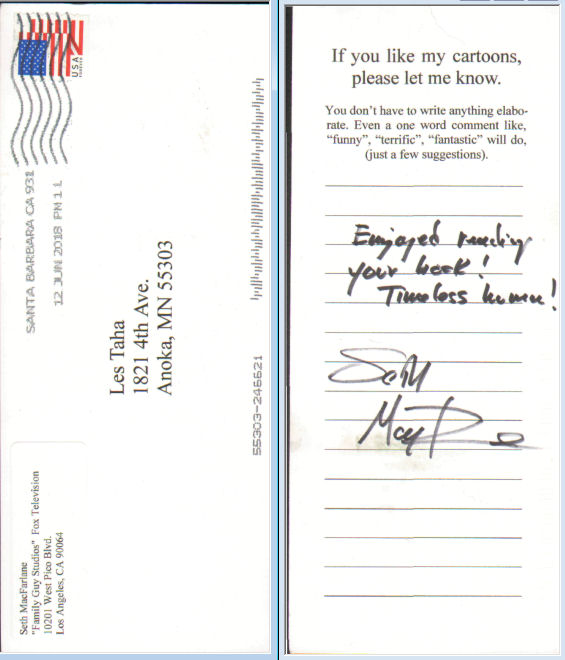 USA
SANTA BARBARA CA 931
12 JUN 2018 PM 1 L
Les Taha
1821 4th Ave.
Anoka, MN 55303
55303-246621
Seth MacFarlane
"Family Guy Studios" Fox Television
10201 West Pico Blvd.
Los Angeles, CA 90064
If you like my cartoons,
please let me know.
You don't have to write anything elabo-
rate. Even a one word comment like,
"funny", "terrific", "fantastic" will do,
(just a few suggestions).
Enjoyed reading
your book!
Timeless humor!
Seth